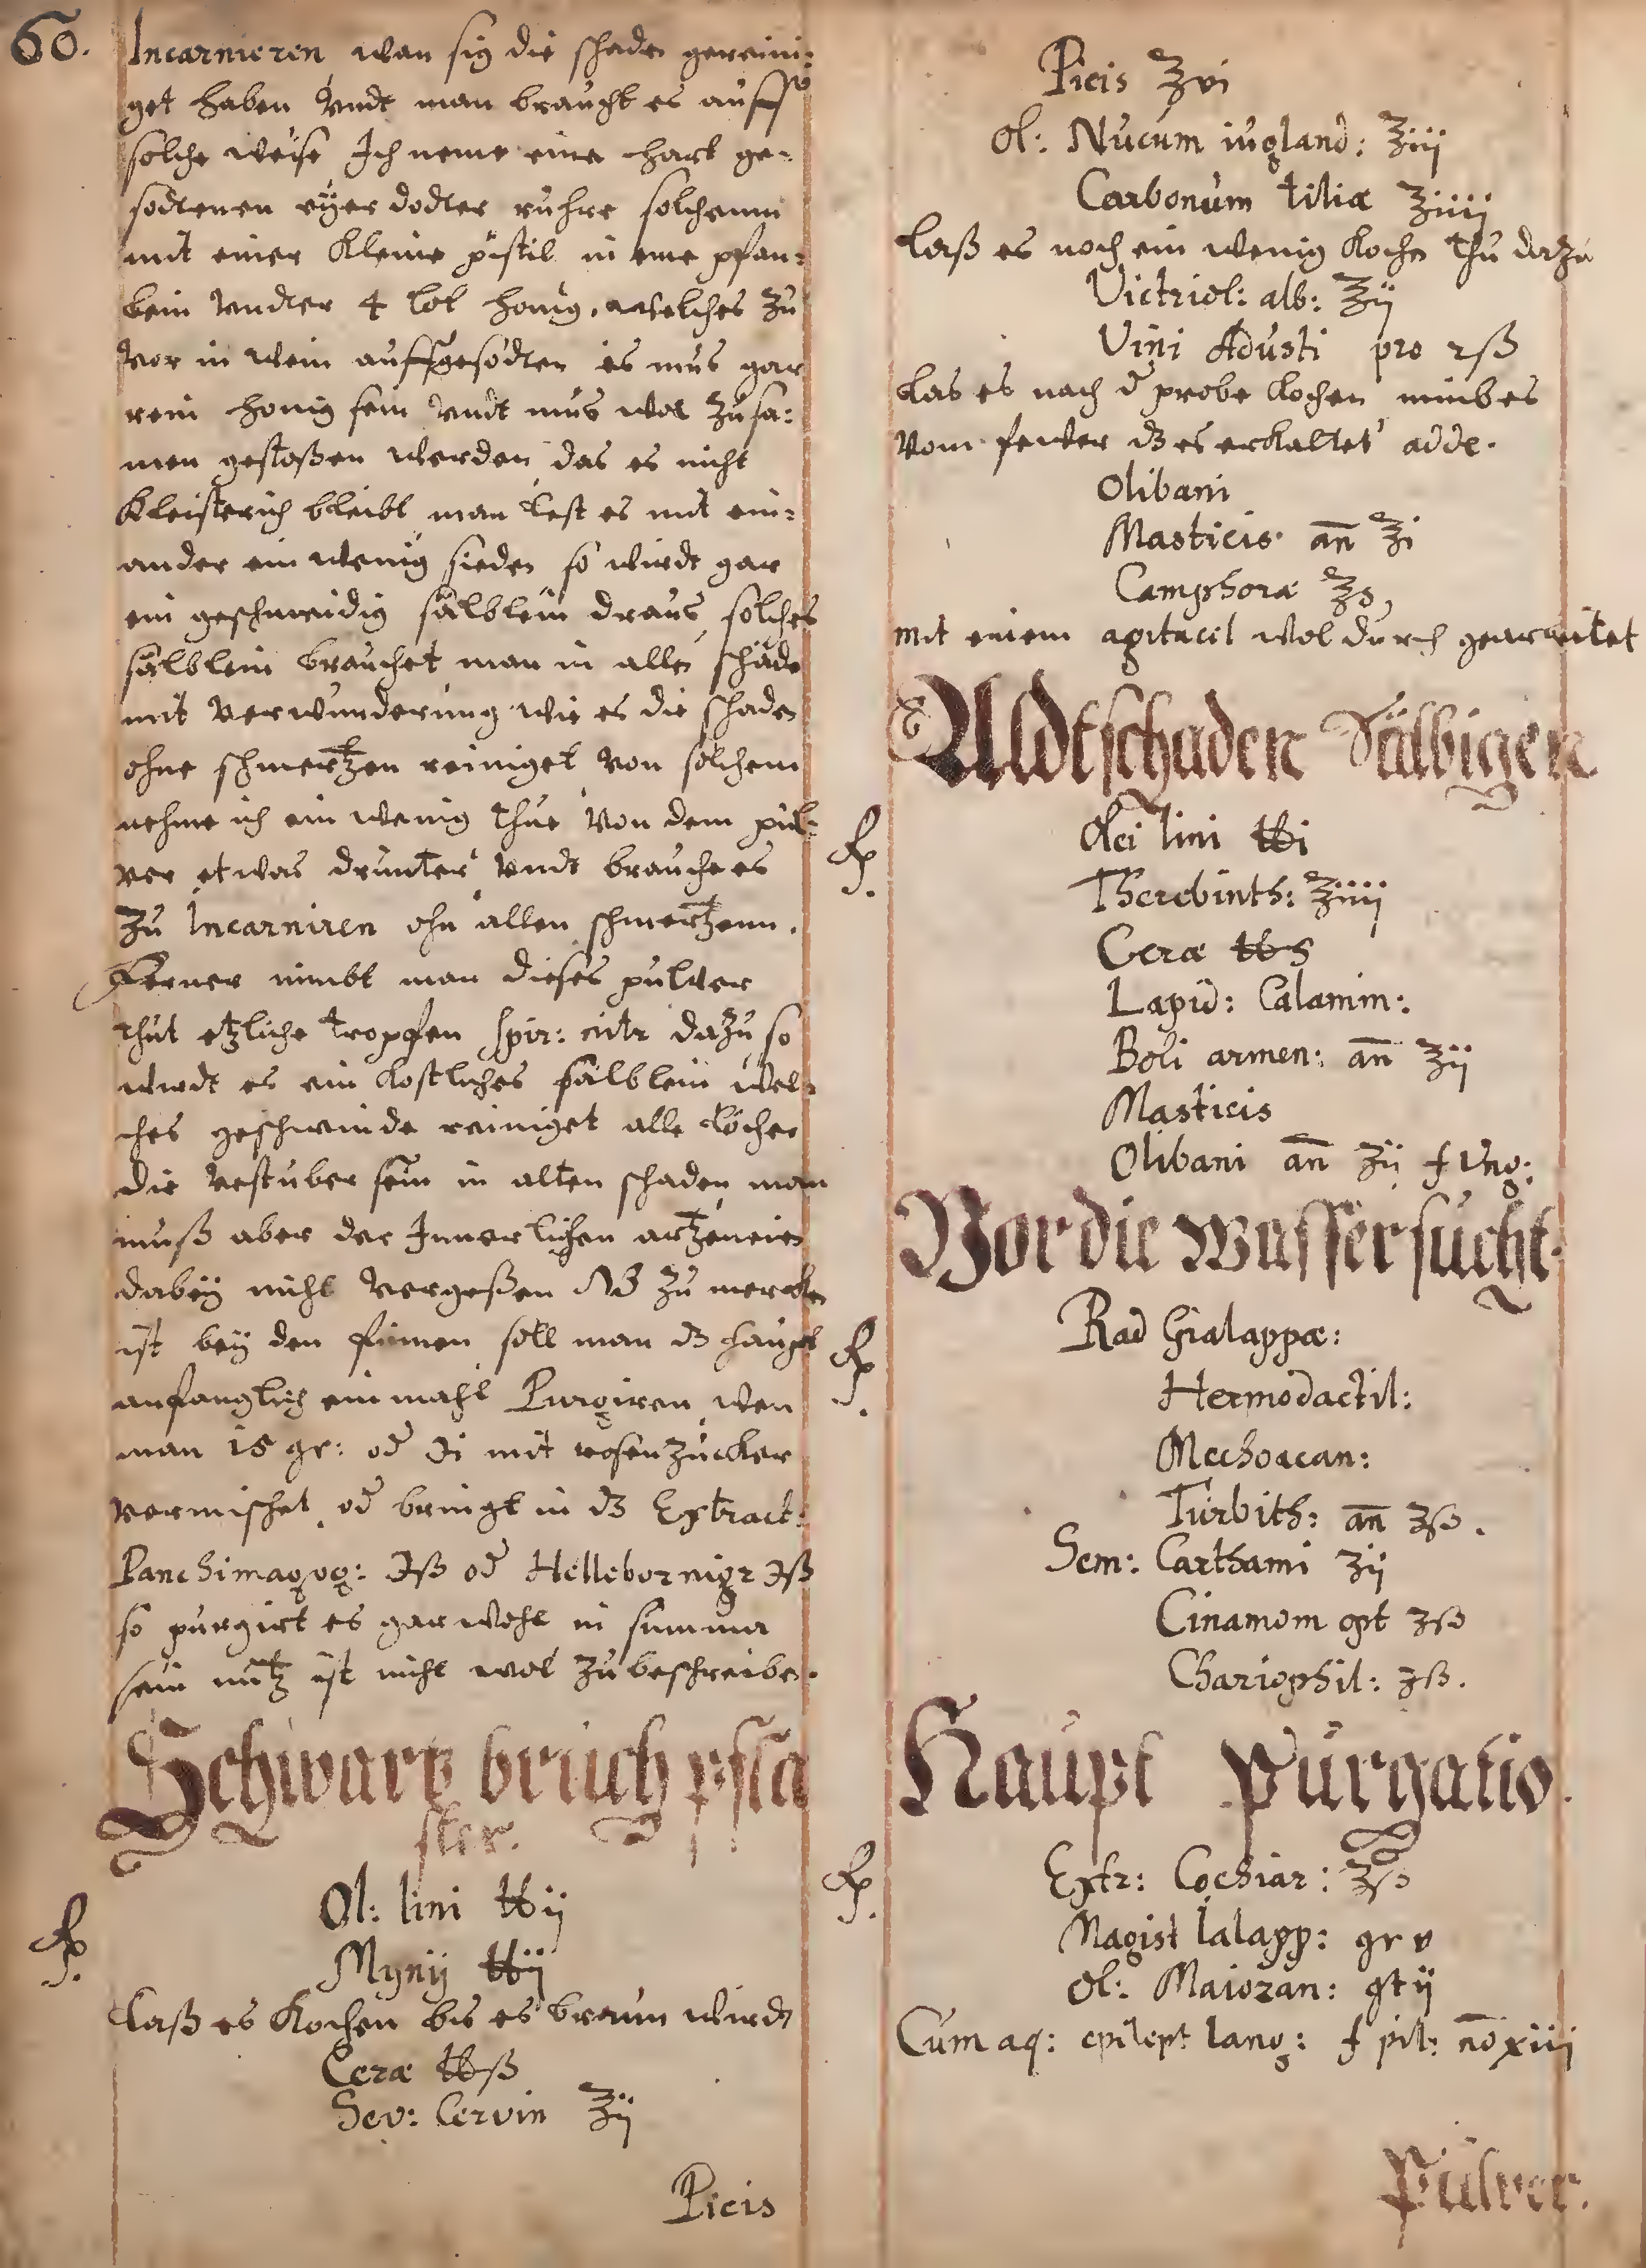 60.
Incarnieren wan sig die schaden gereini:
get haben Vndt man braucht es auff
solche weise Ich neme eine hart ge-
sodtenen eÿer dodter ruhre solchenn
mit einer Kleine pistil in eine pfan:
lein Vndter 4 lot honig, welches zu
Vor in wein auffgesodten es mus gar
rein honig sein Vndt mus wol zusa:
men gestoßen werden das es nicht
Kleisterich bleibt man lest es mit ein:
ander ein wenig sieden so wirdt gar
ein geschmeidig sälblein draus, solches
sälblein brauchet man in allen schäde
mit Verwunderung wie es die schaden
ohne schmertzen reiniget Von solchem
nehme ich ein wenig thue Von dem pul:
ver etwas drunter Vndt brauche es
zu Incarniren ohn allen schmertzenn.
Ferner nimbt man dieses pulver
thut etzliche tropfen spir: nitr dazu so
wirdt es ein kostliches sälblein wel:
ches geschwinde reiniget alle löcher
die sein in alten schaden man
muß aber der Innerlichen artzeneien
dabeÿ nicht Vergeßen NB zu mercken
ist beÿ den fürnen soll man dz haupt
anfanglich einmahl Purgiren, wen
man 15 gr: od ℈i mit rosenzucker
vermischet od bringt in dz Extract:
Panchimagog: ℈ß od Hellebor nigr ℈ß
so purgirt es gar wohl in summa
sein nutz ist nicht wol zu beschreiben.
Schwartz bruch pfla
ster.
Rp.
Ol: lini ℔ij
Mynij ℔ij
Laß es Kochen bis es braun wirdt
Ceræ ℔ß
Sev: Cervin ℥ij
Picis
Picis ℥vi
Ol: Nucum iugland: ℥iij
Carbonum tiliæ ℥iiij
Laß es noch ein wenig Kochen thu dazu
Victriol: alb: ℥ij
Vini Adusti pro 2ß
Las es nach d probe Kochen nimb es
Vom fewer dz es erkaltet adde.
Olibani
Masticis an ℥i
Camphoræ ℥s,
mit einem wol durch gearbeitet
Aldtschaden Sälbigen
Rp.
Olei lini ℔i
Therebinth: ℥iiij
Ceræ ℔s
Lapid: Calamin:
Boli armen: an ℥ij
Masticis
Olibani an ℥ij f Ung:
Vor die Wasser sucht.
Rp.
Rad Gialappæ:
Hermodactil:
Mechoacan:
Turbith: an ʒß.
Sem: Carthami ʒij
Cinamom opt ʒß
Chariophil: ʒß.
Haupt Purgatio.
Rp.
Extr: Cochiar: ʒß
Magist Ialapp: gr v
Ol: Maiozan: gt ij
Cum aq: epilept lang: f pil: no xiij
Pulver.